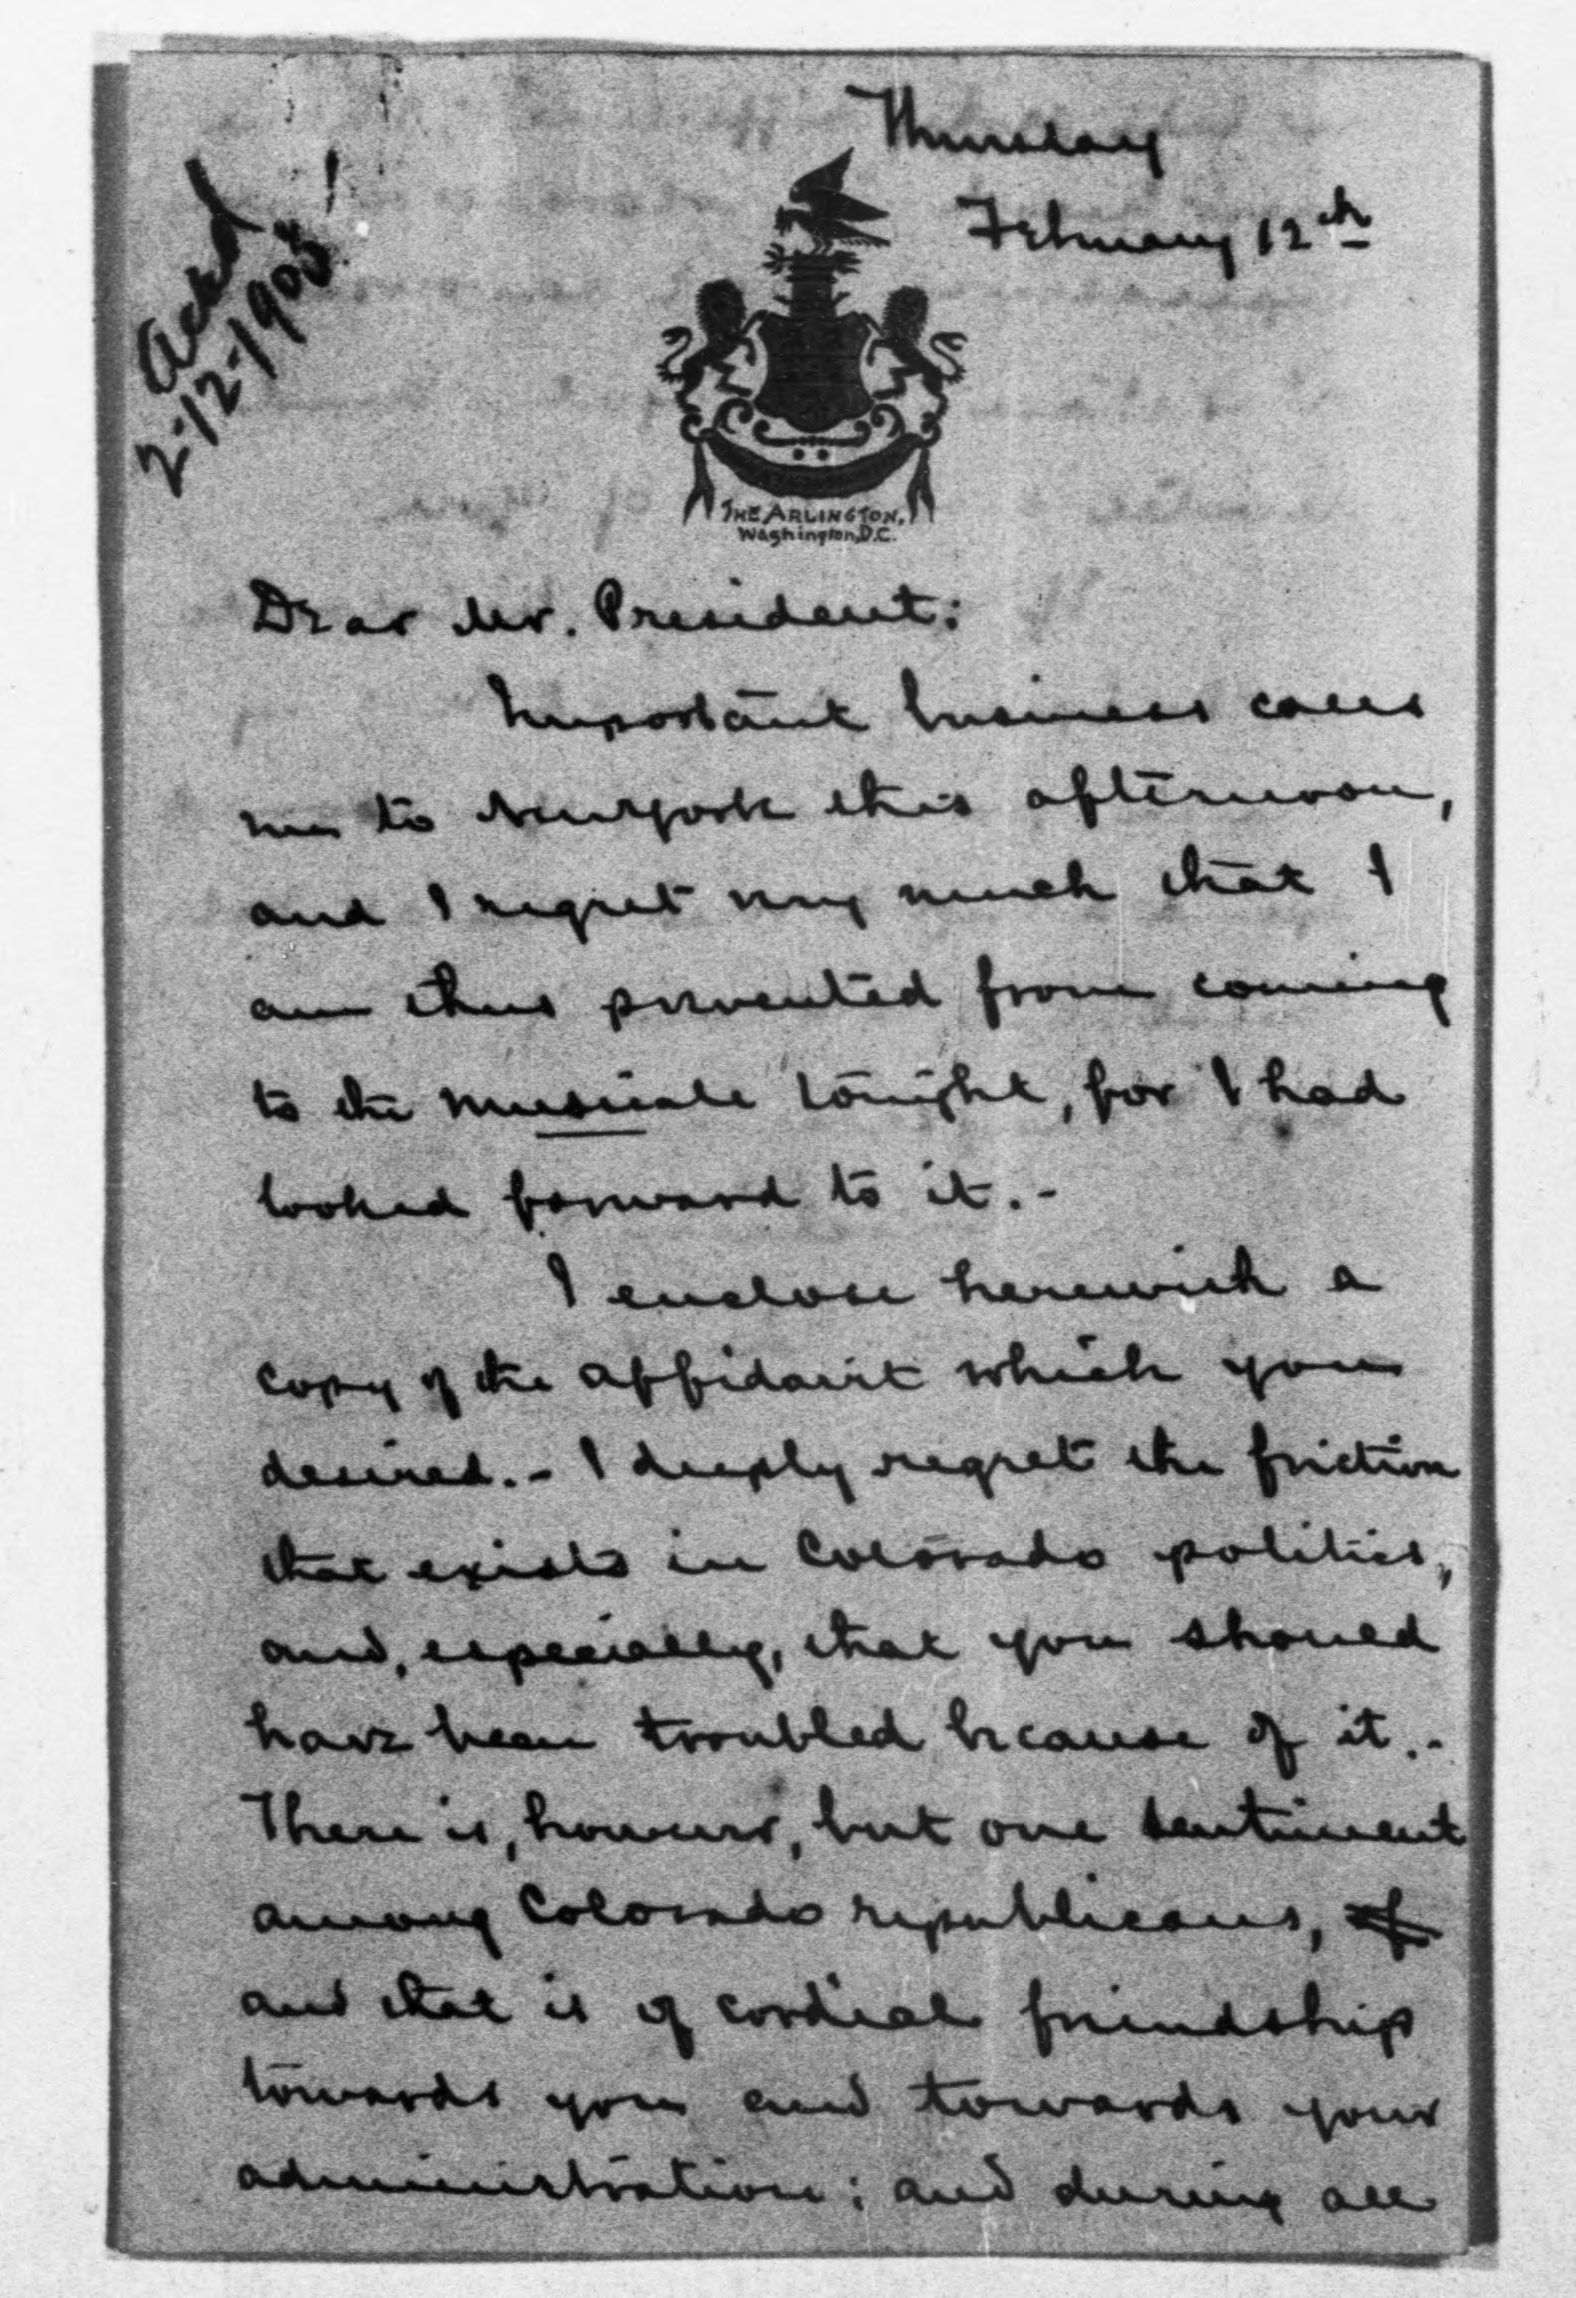 Thursday
February 12th
Ackd
2-12-1903
THE ARLINGTON,
Washington, D.C.
Dear Mr. President:
Important business calls
me to New York this afternoon,
and I regret very much that I
am thus prevented from coming
to the musicale tonight, for I had
looked forward to it.-
I enclose herewith a
copy of the affidavit which you
desired.- I deeply regret the friction
that exists in Colorado politics,
and, especially, that you should
have been troubled because of it.-
There is, however, but one sentiment
among Colorado republicans, of
and that is of cordial friendship
towards you and towards your
administration; and during all